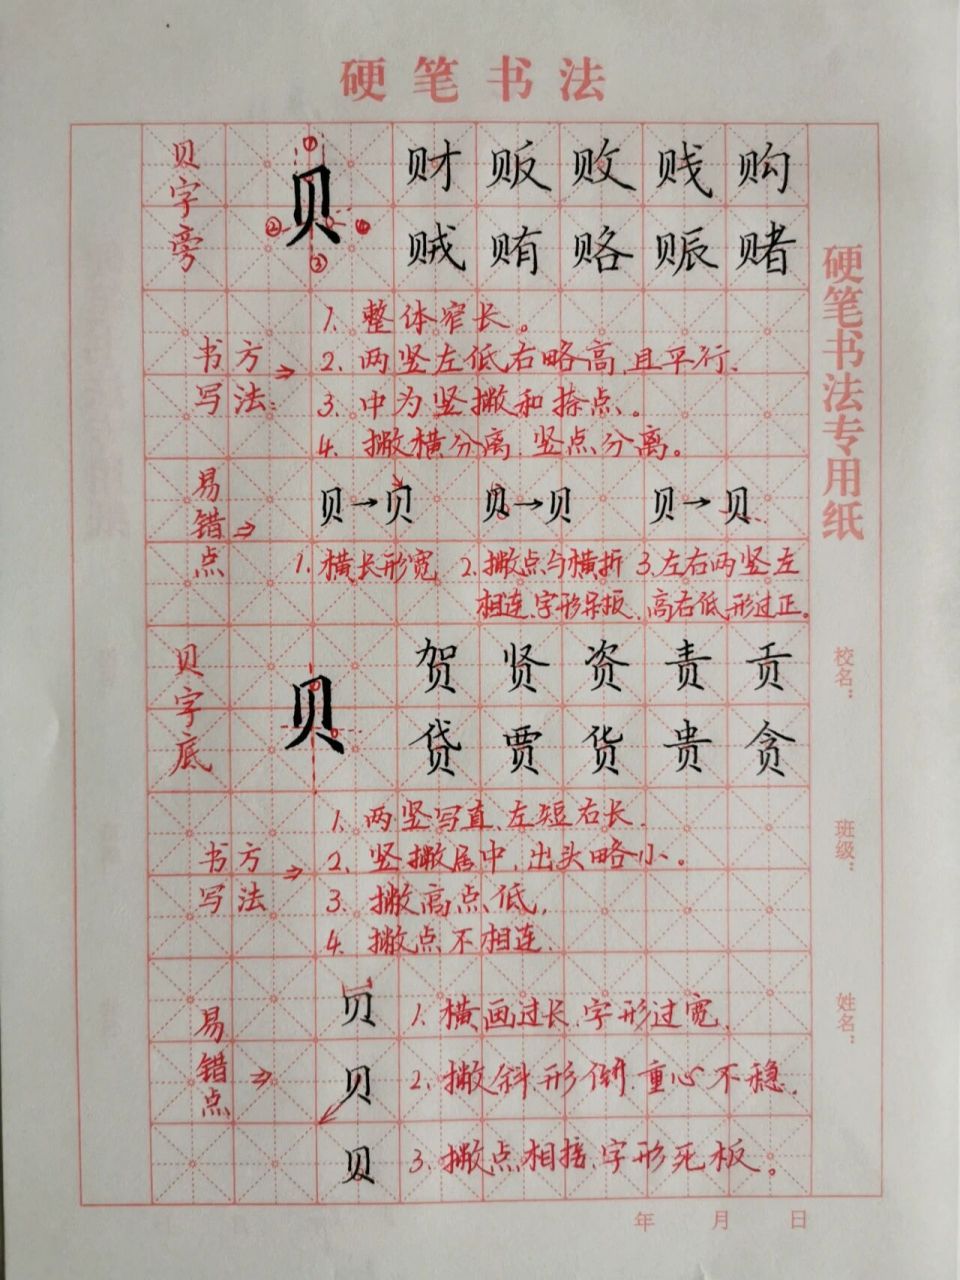 硬笔书法
贝字旁
①
贝
②
④
③
财 贩 败 贱 购
贼 贿 赂 赈 赌
书写方法:
1. 整体窄长。
2. 两竖左低右略高,且平行.
3. 中为竖撇和捺点。
4. 撇横分离,竖点分离。
易错点
贝→贝 贝→贝 贝→贝
1. 横长形宽
2. 撇点与横折相连,字形呆板.
3. 左右两竖左高右低,形过正。
贝字底
贝
贺 贤 资 责 贡
贷 贾 货 贵 贪
书写方法
1. 两竖写直,左短右长.
2. 竖撇居中,出头略小。
3. 撇高点低,
4. 撇点不相连.
易错点
贝
1. 横画过长,字形过宽.
贝
2. 撇斜形倒,重心不稳.
贝
3. 撇点相接,字形死板。
硬笔书法专用纸
校名:
班级:
姓名:
年 月 日